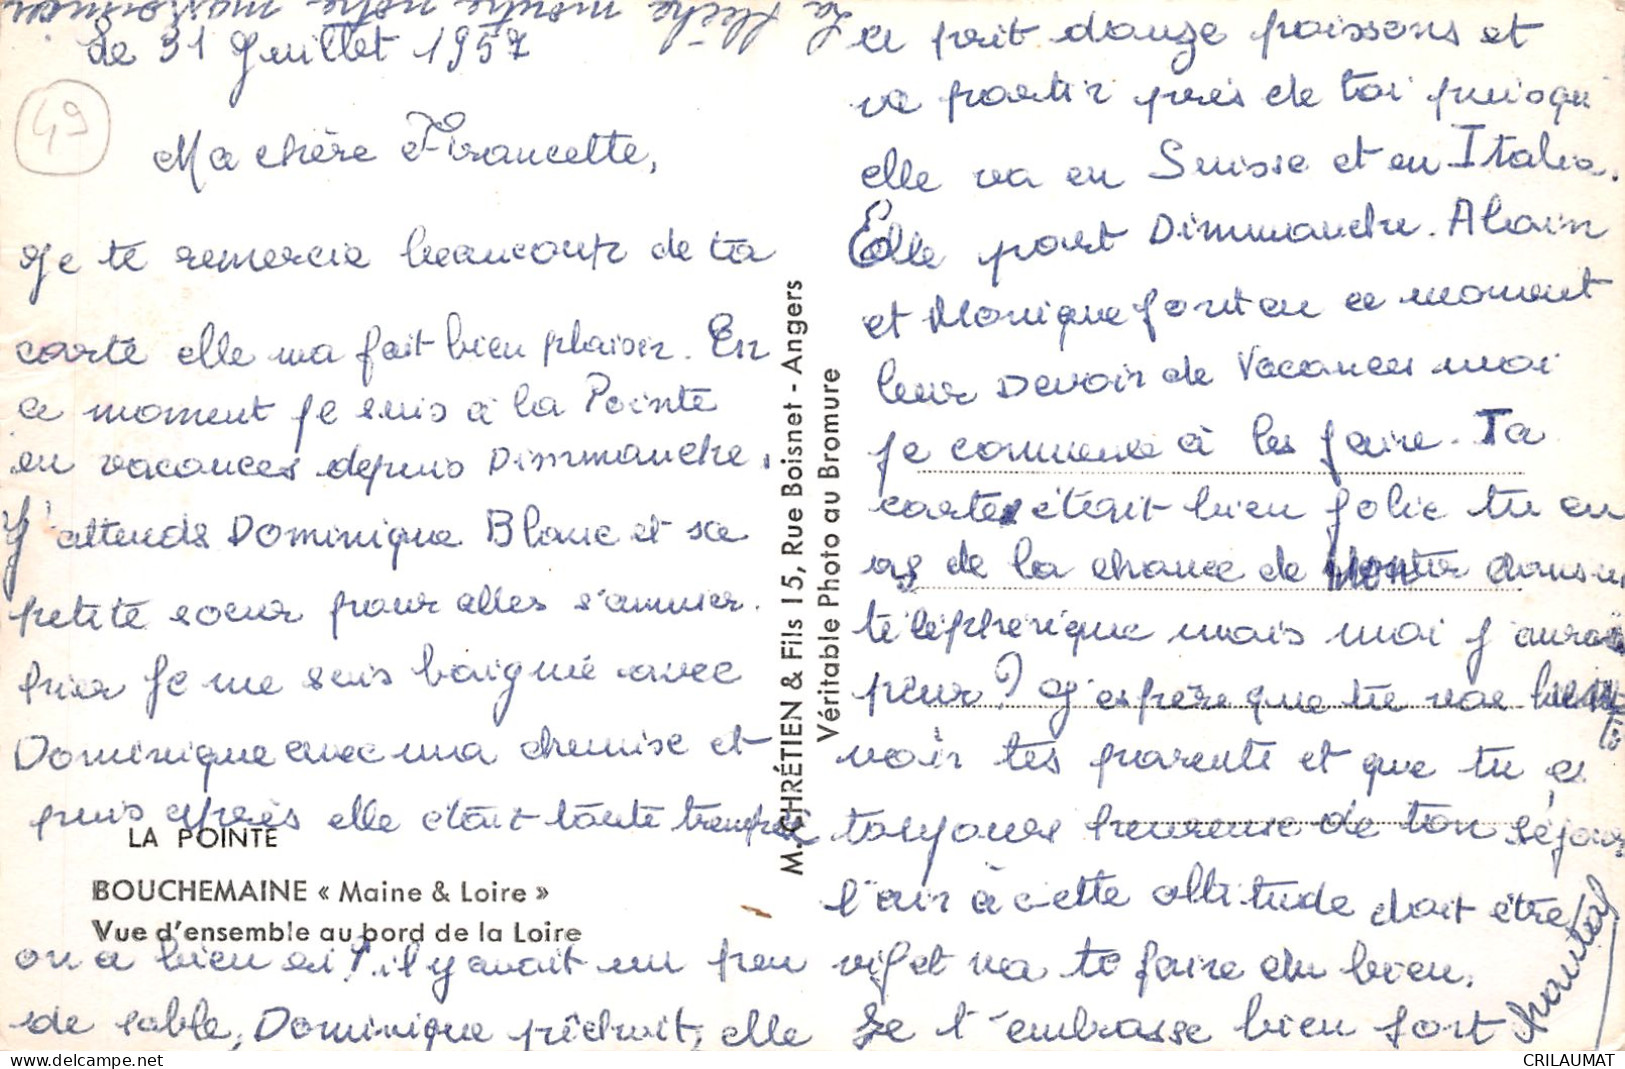 La flèche montre notre maison
Le 31 Juillet 1957
49
Ma chère Francette,
Je te remercie beaucoup de ta
carte elle ma fait bien plaisir. En
ce moment je suis à la Pointe
en vacances depuis Dimmanche.
J'attends Dominique Blanc et sa
petite soeur pour alles s'amuser.
hier je me suis baigné avec
Dominique avec ma chemise et
puis après elle était toute trempée
LA POINTE
BOUCHEMAINE « Maine & Loire »
Vue d'ensemble au bord de la Loire
on a bien ri ! il y avait un peu
de sable, Dominique pêchait, elle
M. CHRÉTIEN & Fils 15, Rue Boisnet - Angers
Véritable Photo au Bromure
a prit douze poissons et
va partir près de toi puisqu
elle va en Suisse et en Italie.
Elle part Dimmanche. Alain
et Monique font en ce moment
leur Devoir de Vacances moi
je commence à les faire. Ta
carte était bien jolie tu en
as de la chance de monter dans un
téléphérique mais moi j'aurais
peur ? J'espère que tu vas bien
voir tes parents et que tu es
toujours heureuse de ton séjour
l'air à cette altitude doit être
vif et va te faire du bien.
Je t'embrasse bien fort
Chantal
CRILAUMAT